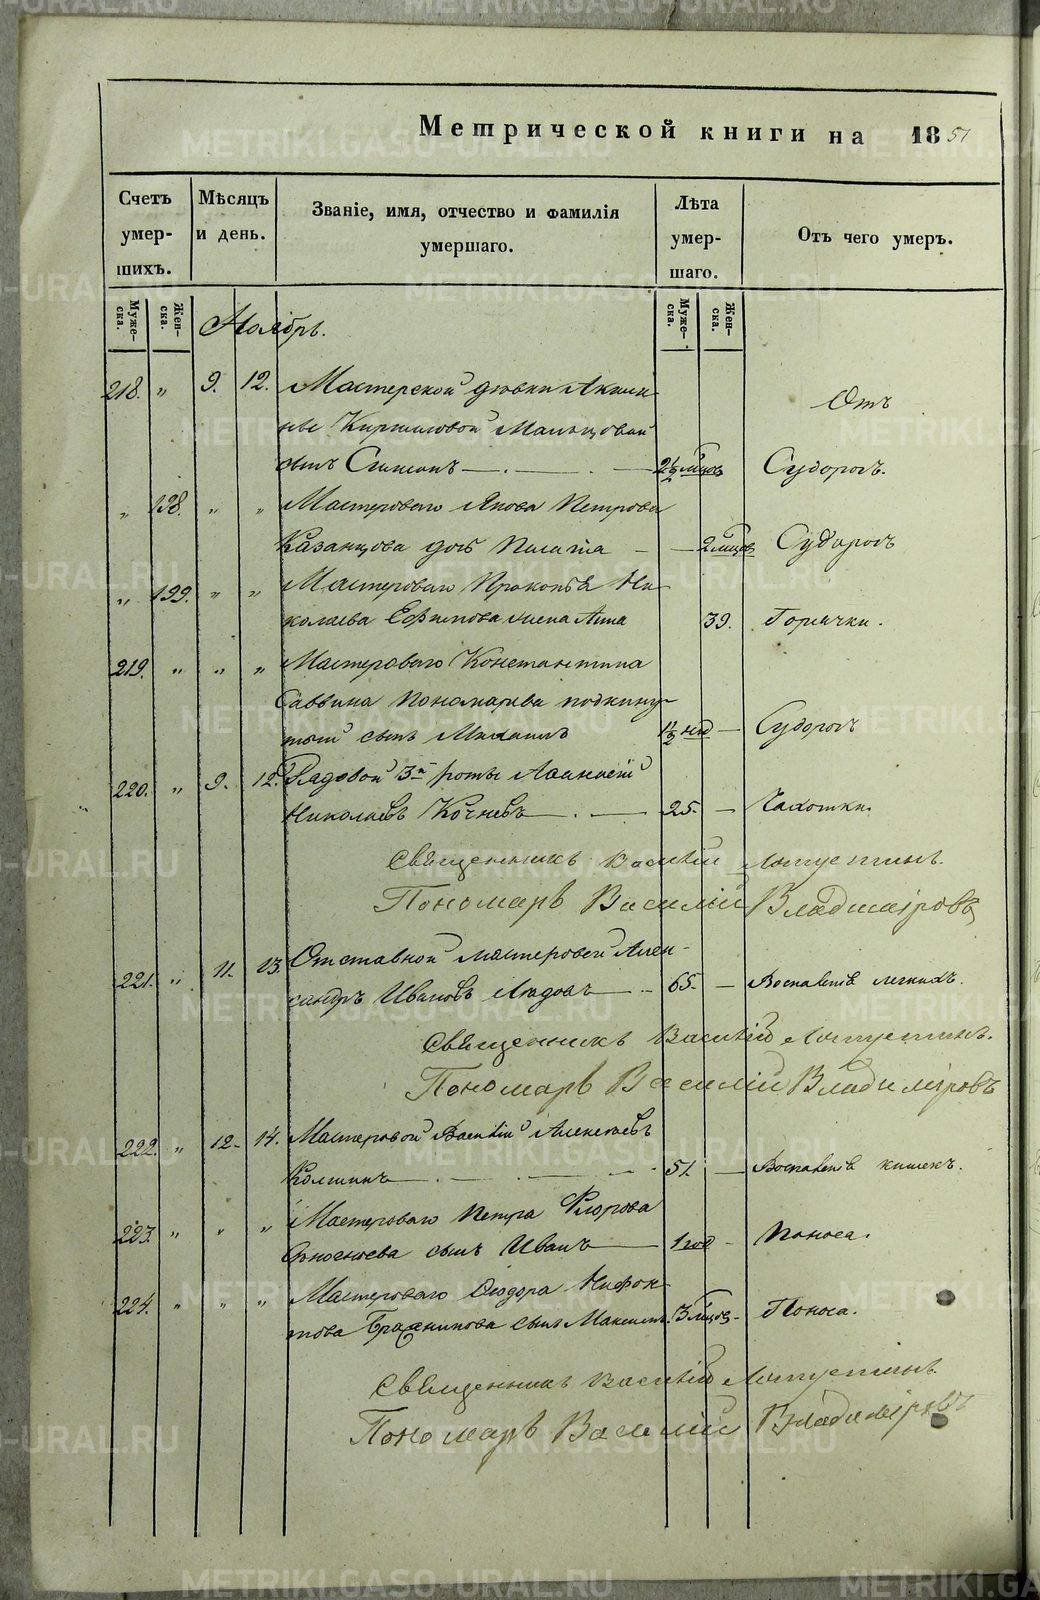 Метрической книги на 1851
Счетъ умер-шихъ.
Мѣсяцъ и день.
Званіе, имя, отчество и фамилія умершаго.
Лѣта умер-шаго.
Отъ чего умеръ.
Муже-ска.
Жен-ска.
Муже-ска.
Жен-ска.
Ноябрь.
218. " 9. 12. Мастерской дѣвки Акили-
ны Кирилловой Мальцовой Отъ
сынъ Симеонъ 2½ мѣсцовъ Судорогъ.
" 198. " " Мастероваго Якова Петрова
Казанцова дочь 2 мѣсцовъ Судорогъ
" 199. " " Мастероваго Прокопія Ни-
колаева Ефимова жена Анна 39. Горячки.
219. " " " Мастероваго Константина
Саввина Пономарева подкину-
тый сынъ Михаилъ 1½ нед Судорогъ
220. " 9. 12. Рядовой 3й роты Афанасій
Николаевъ Кочневъ 25. Чахотки.
Священникъ Василій
Пономарь Василій Владиміровъ
221. " 11. 13. Отставной мастеровой Алек-
сандръ Ивановъ 65. Воспаленія легкихъ.
Священникъ Василій
Пономарь Василій Владиміровъ
222. " 12. 14. Мастеровой Василій Алексѣевъ
51. Воспаленія кишекъ.
223. " " " Мастероваго Петра Флорова
сынъ Иванъ 1 год Поноса.
224. " " " Мастероваго Ѳеодора Нифон-
това сынъ Максимъ. 3 мѣсцовъ Поноса.
Священникъ Василій
Пономарь Василій Владиміровъ
METRIKI.GASO-URAL.RU